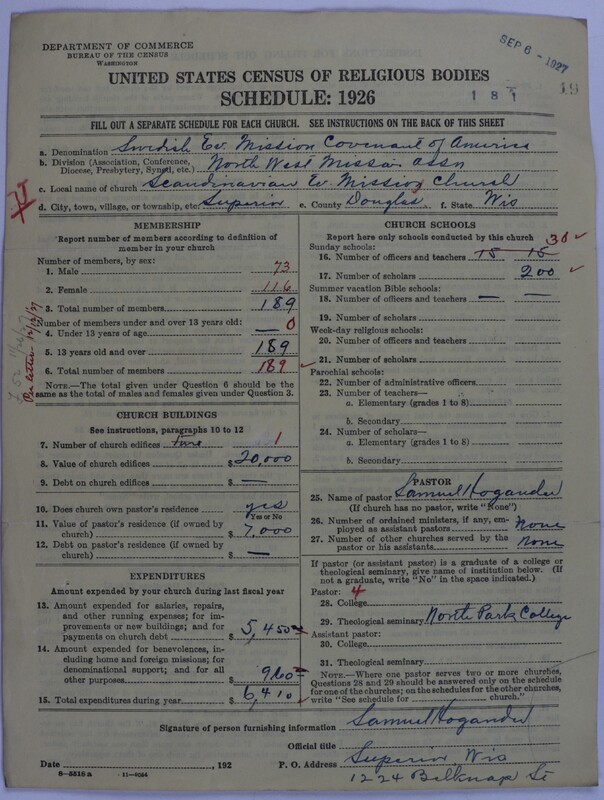 DEPARTMENT OF COMMERCE
BUREAU OF THE CENSUS
WASHINGTON
SEP 6 - 1927
UNITED STATES CENSUS OF RELIGIOUS BODIES
SCHEDULE: 1926
1 8 1
19
FILL OUT A SEPARATE SCHEDULE FOR EACH CHURCH. SEE INSTRUCTIONS ON THE BACK OF THIS SHEET
a. Denomination Swedish Ev. Mission Covenant of America
b. Division (Association, Conference, Diocese, Presbytery, Synod, etc.) North West Mission Assn
c. Local name of church Scandinavian Ev. Mission Church
d. City, town, village, or township, etc. Superior e. County Douglas f. State Wis
MEMBERSHIP
Report number of members according to definition of member in your church
Number of members, by sex:
1. Male 73
2. Female 116
3. Total number of members 189
Number of members under and over 13 years old:
4. Under 13 years of age — 0
5. 13 years old and over 189
6. Total number of members 189
NOTE.—The total given under Question 6 should be the same as the total of males and females given under Question 3.
Per letter 12/12/27
CHURCH BUILDINGS
See instructions, paragraphs 10 to 12
7. Number of church edifices two 1
8. Value of church edifices $20,000
9. Debt on church edifices $ —
10. Does church own pastor's residence yes
Yes or No
11. Value of pastor's residence (if owned by church) $7,000
12. Debt on pastor's residence (if owned by church) $ —
EXPENDITURES
Amount expended by your church during last fiscal year
13. Amount expended for salaries, repairs, and other running expenses; for improvements or new buildings; and for payments on church debt $5,450
14. Amount expended for benevolences, including home and foreign missions; for denominational support; and for all other purposes $960
15. Total expenditures during year $6,410
CHURCH SCHOOLS
Report here only schools conducted by this church
Sunday schools: 30
16. Number of officers and teachers 15 15
17. Number of scholars 200
Summer vacation Bible schools:
18. Number of officers and teachers — —
19. Number of scholars
Week-day religious schools:
20. Number of officers and teachers
21. Number of scholars
Parochial schools:
22. Number of administrative officers
23. Number of teachers—
a. Elementary (grades 1 to 8)
b. Secondary
24. Number of scholars—
a. Elementary (grades 1 to 8)
b. Secondary
PASTOR
25. Name of pastor Samuel Hogander
(If church has no pastor, write "None")
26. Number of ordained ministers, if any, employed as assistant pastors None
27. Number of other churches served by the pastor or his assistants None
If pastor (or assistant pastor) is a graduate of a college or theological seminary, give name of institution below. (If not a graduate, write "No" in the space indicated.)
Pastor: 4
28. College
29. Theological seminary North Park College
Assistant pastor:
30. College
31. Theological seminary
NOTE.—Where one pastor serves two or more churches, Questions 28 and 29 should be answered only on the schedule for one of the churches; on the schedules for the other churches, write "See schedule for church."
Signature of person furnishing information Samuel Hogander
Official title
Date , 192 P. O. Address Superior Wis
1224 Belknap St
8—5518 a 11—4034